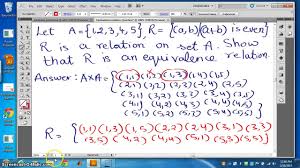 Let A={1,2,3,4,5}, R= {(a,b)|(a-b) is even}
R is a relation on set A. Show
that R is an equivalence relation.
Answer: A×A= {(1,1) (1,2) (1,3) (1,4) (1,5)
(2,1) (2,2) (2,3) (2,4) (2,5)
(3,1) (3,2) (3,3) (3,4) (3,5)
(4,1) (4,2) (4,3) (4,4) (4,5)
(5,1) (5,2) (5,3) (5,4) (5,5)}
R= {(1,1) (1,3) (1,5) (2,2) (2,4) (3,1) (3,3)
(3,5) (4,2) (4,4) (5,1) (5,3) (5,5)}